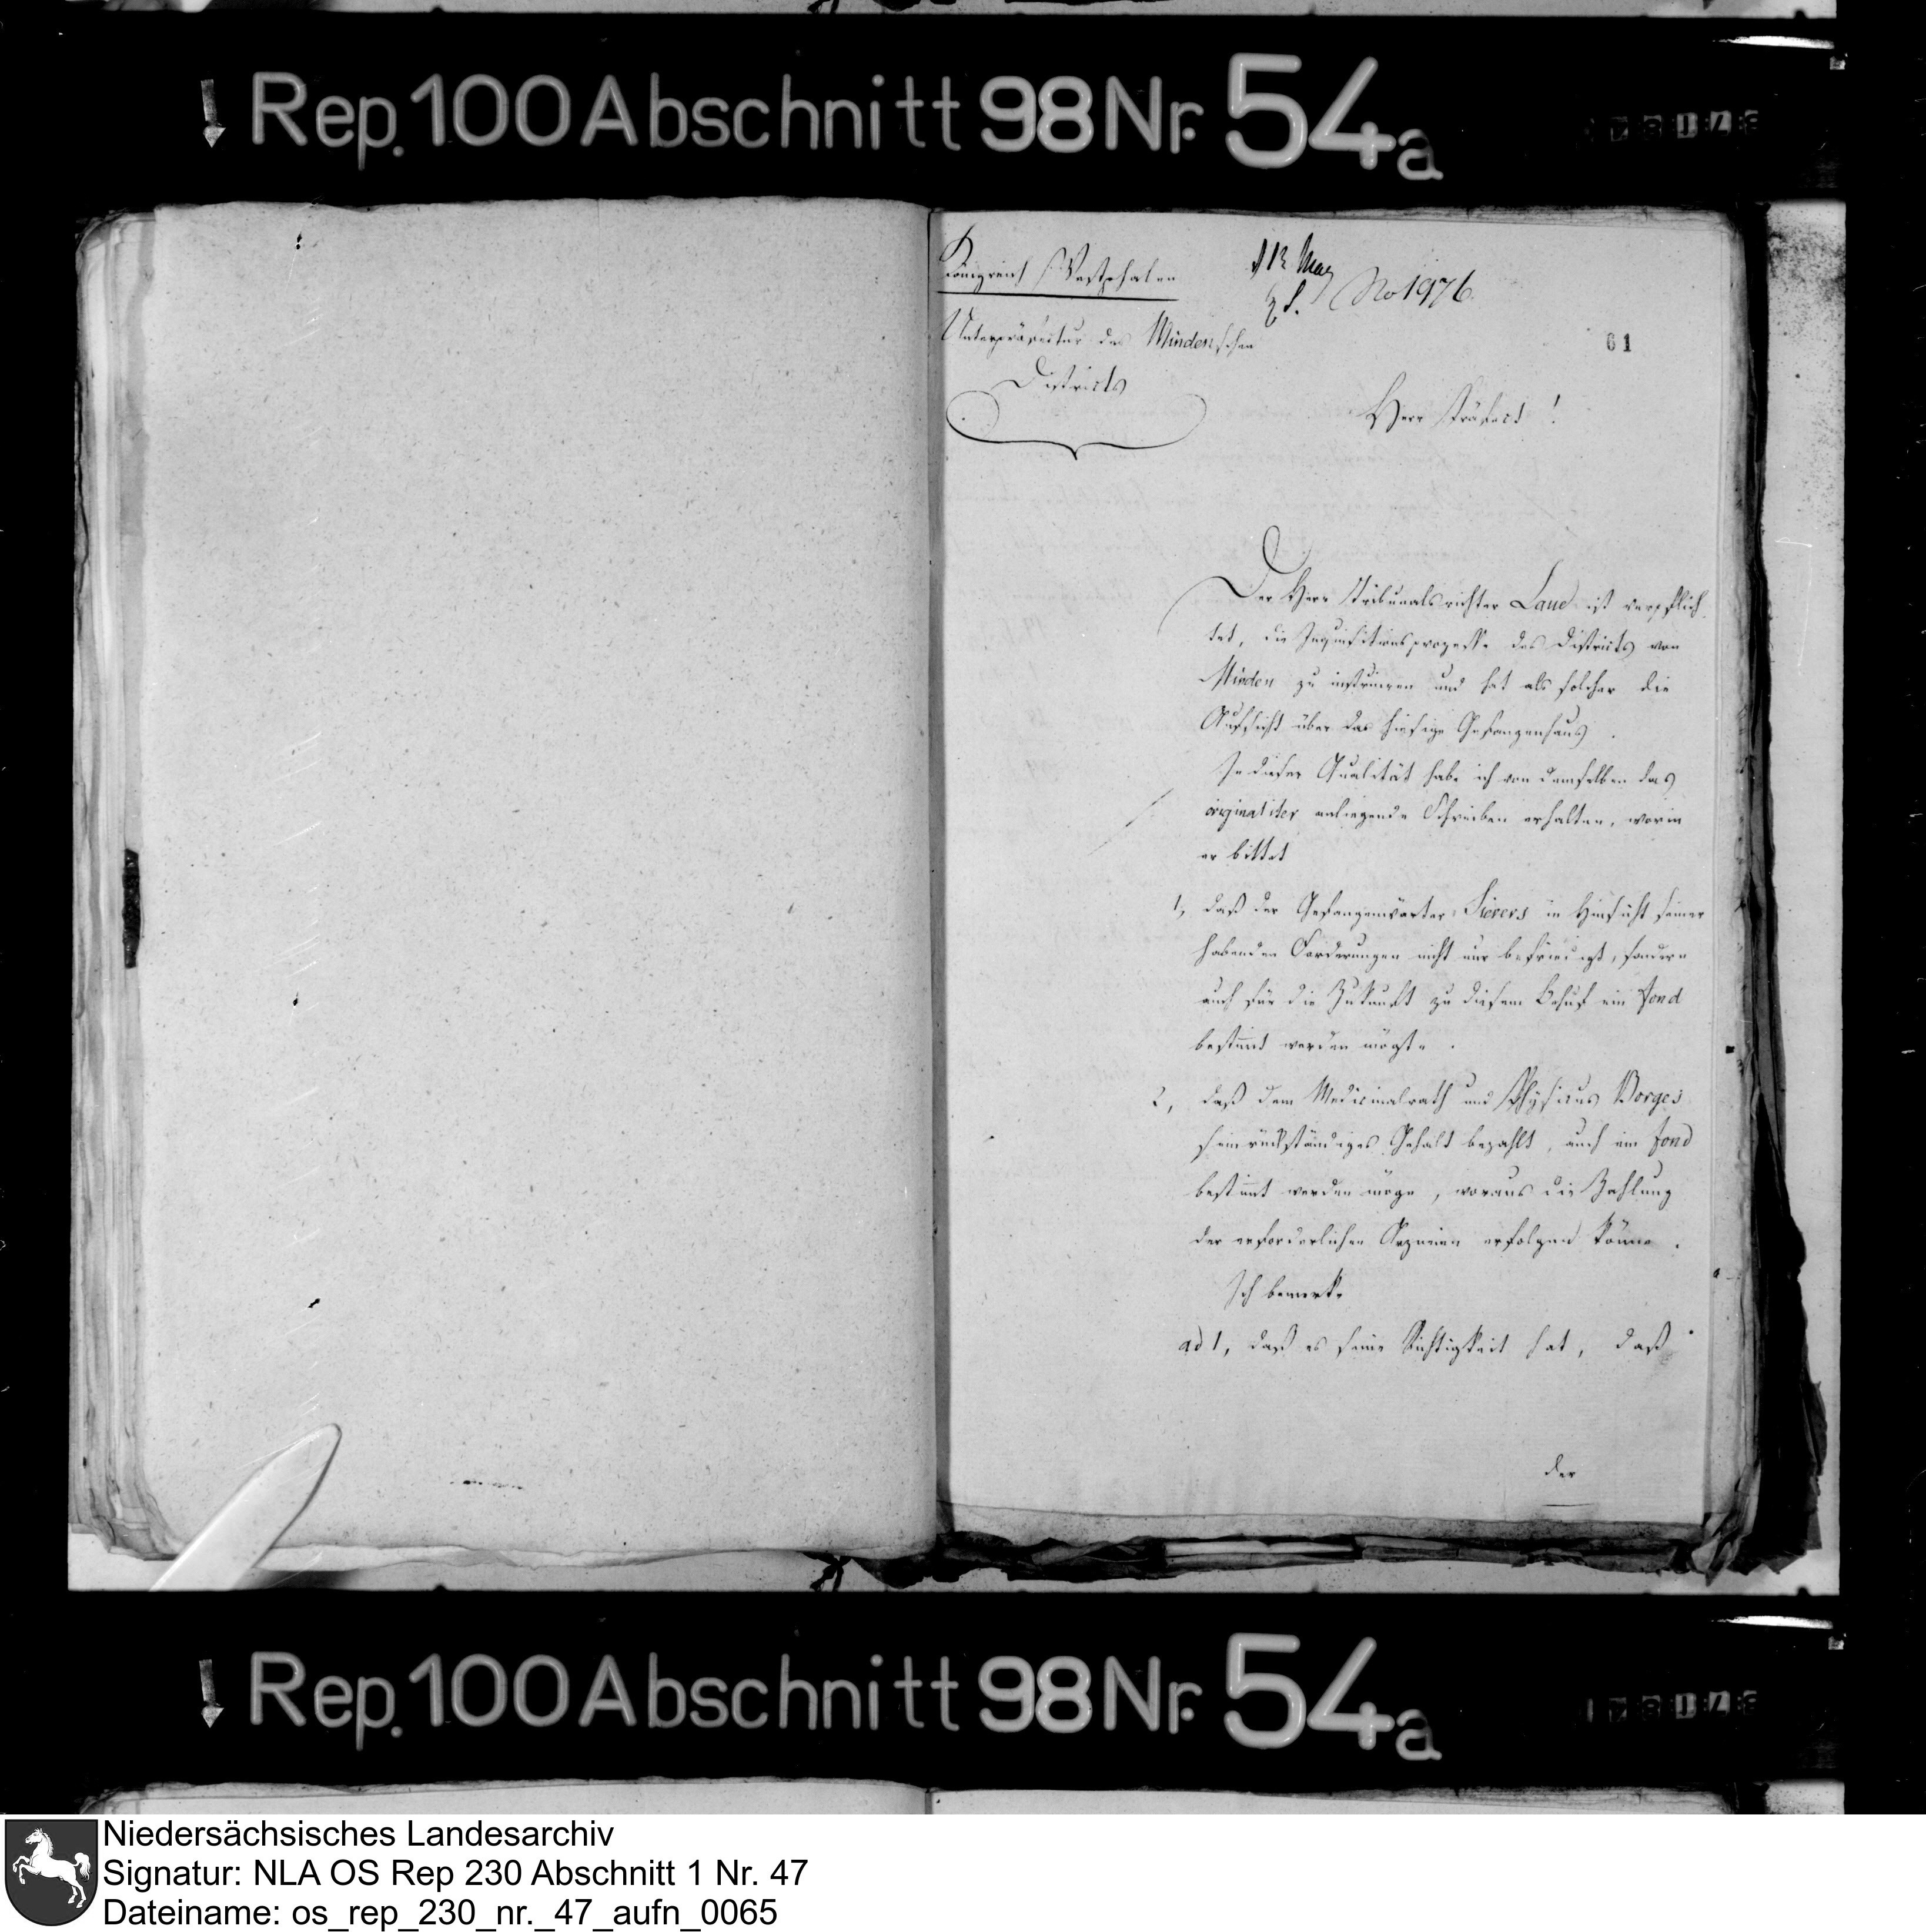 Rep. 100 Abschnitt 98 Nr. 54a
Königreich Westphalen
Unterpräfectur des Mindenschen
Districts
12 May
No 1976.
61
Herr Präfect!
Der Herr Tribunalsrichter Laue ist verpflich
tet, die Inquisitionsprozesse des Districts von
Minden zu instruiren und hat als solcher die
Aufsicht über das hiesige Gefangenhaus.
In dieser Qualität habe ich von demselben das
originaliter anliegende Schreiben erhalten, worin
er bittet
1, daß der Gefangenwärter Sievers in Hinsicht seiner
habenden Forderungen nicht nur befriedigt, sondern
auch für die Zukunft zu diesem Behuf ein Fond
bestimt werden mögte.
2, daß dem Medicinalrath und Physicus Borges
sein rückständiges Gehalt bezahlt, auch ein Fond
bestimt werden möge, woraus die Zahlung
der erforderlichen Arzneien erfolgen könne.
Ich bemerke
ad 1, daß es seine Richtigkeit hat, daß
der
Rep. 100 Abschnitt 98 Nr. 54a
Niedersächsisches Landesarchiv
Signatur: NLA OS Rep 230 Abschnitt 1 Nr. 47
Dateiname: os_rep_230_nr._47_aufn_0065